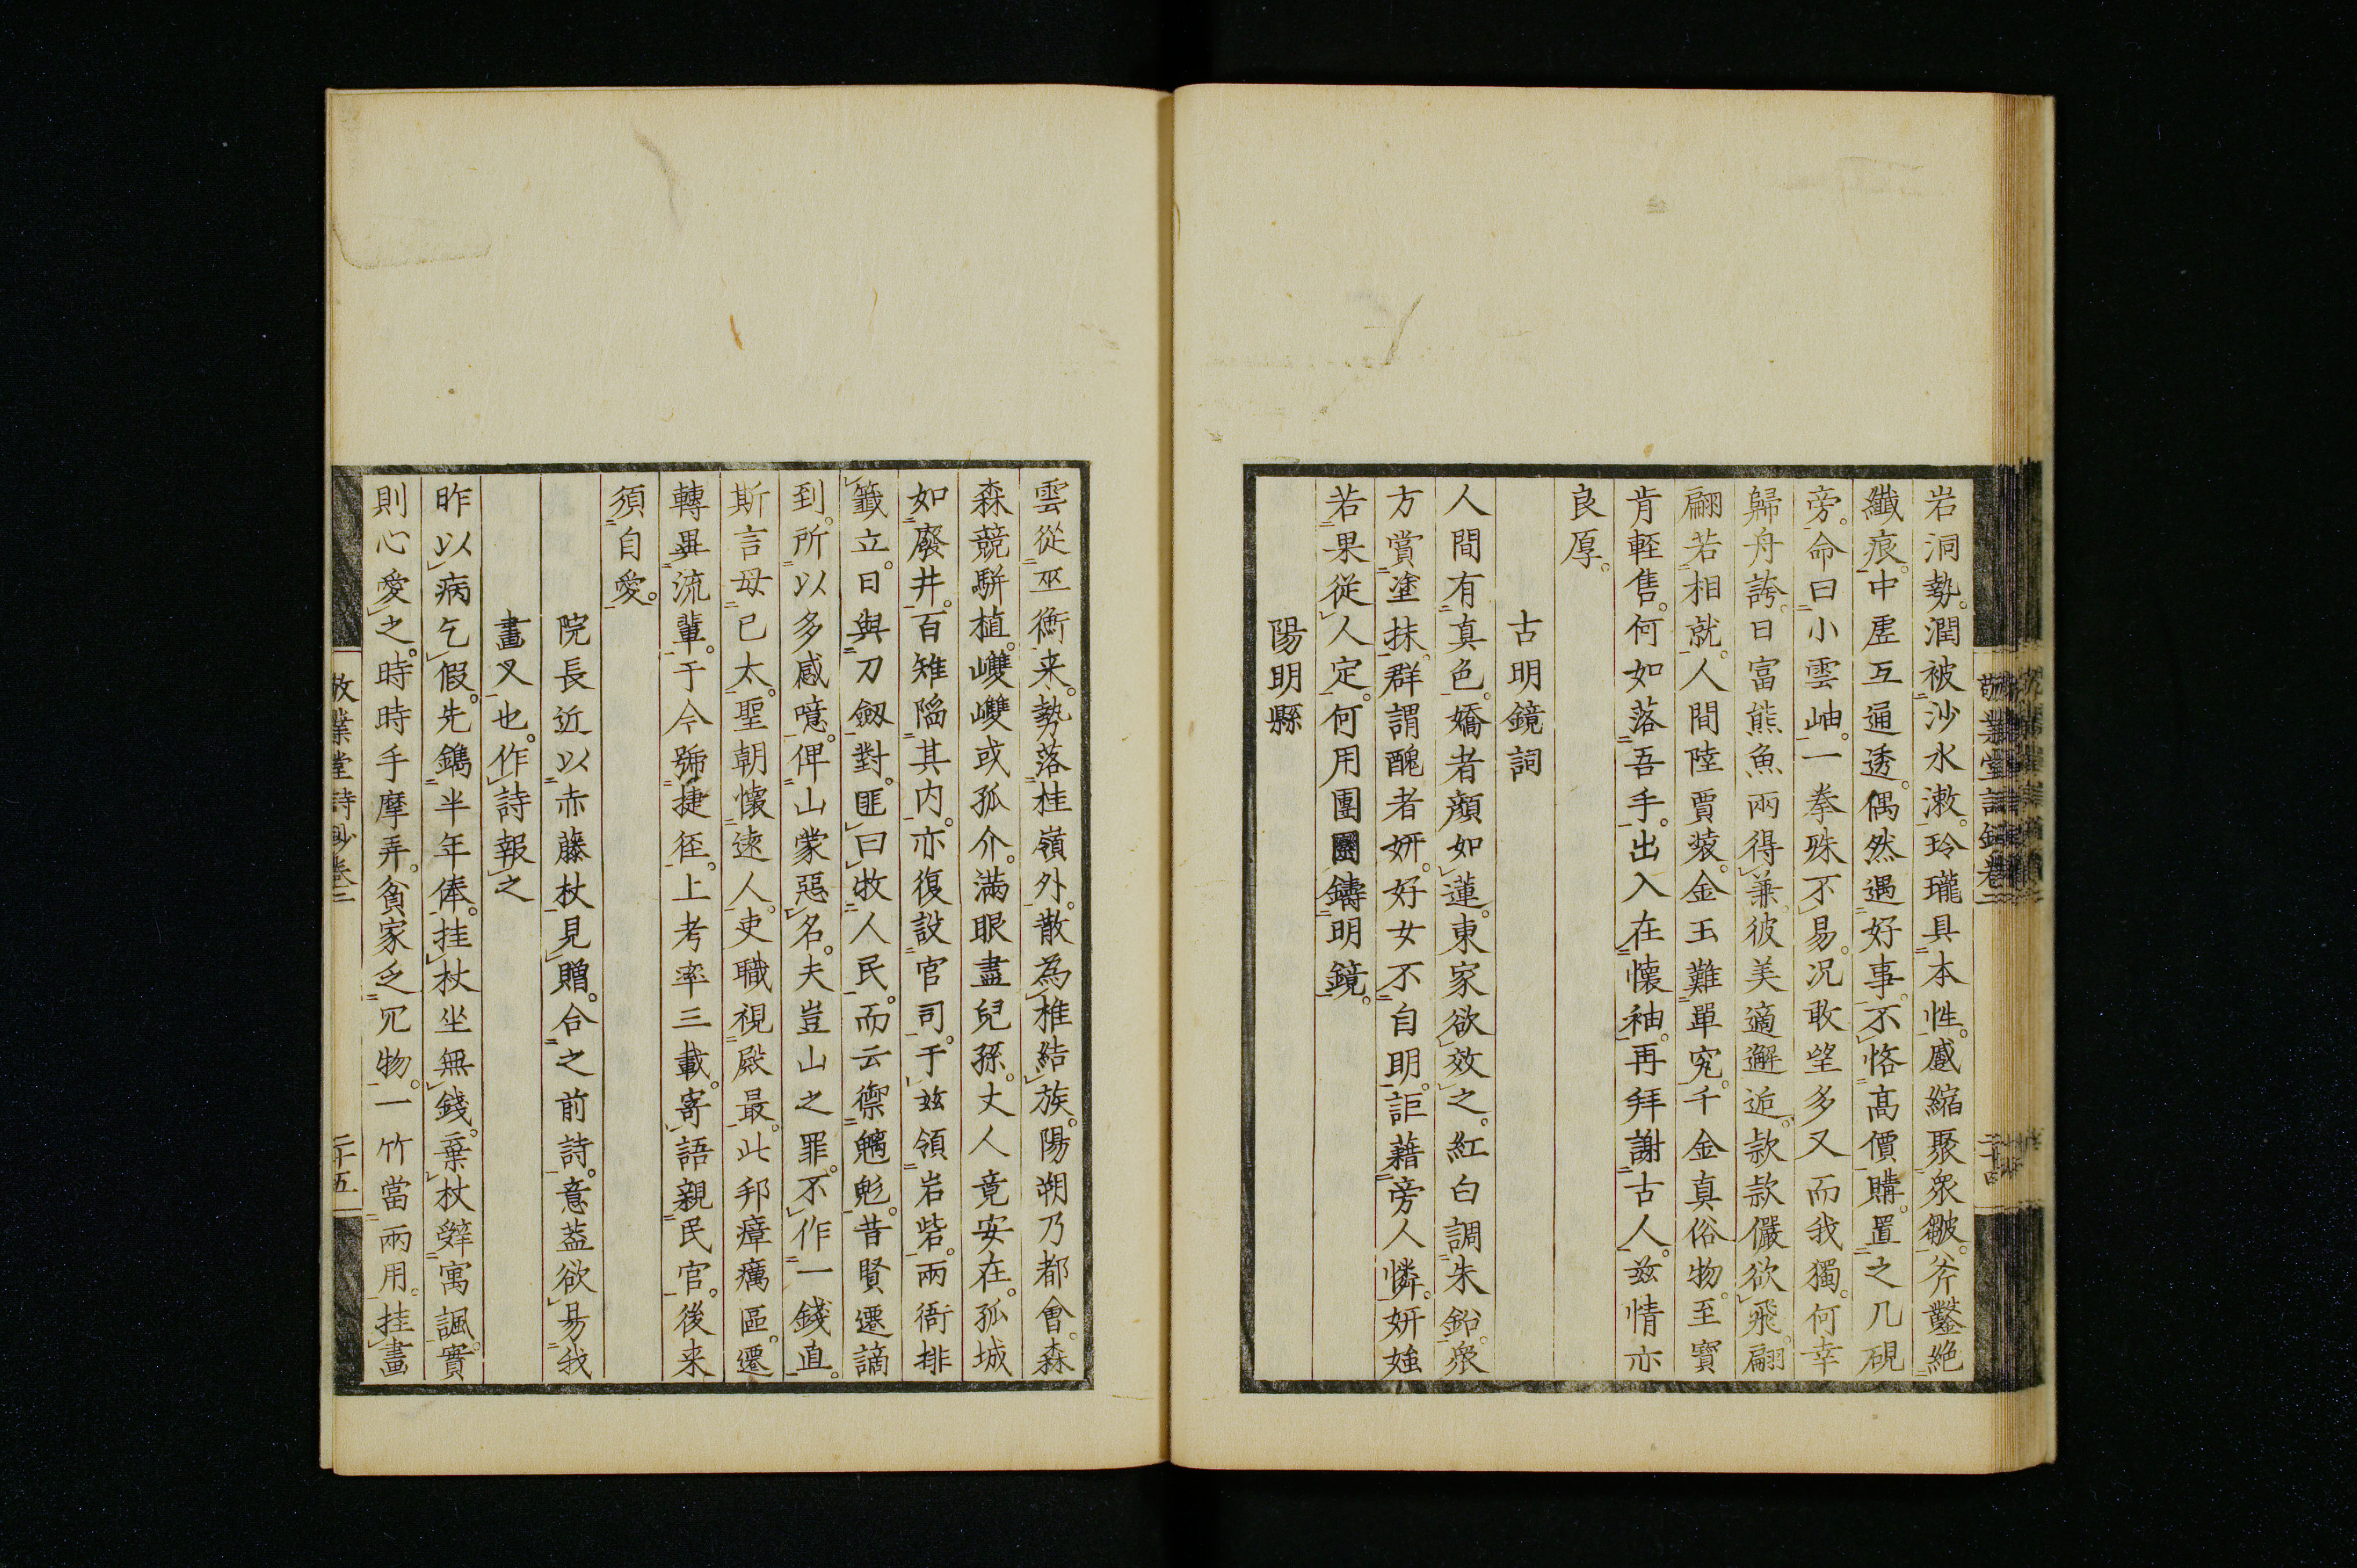 岩洞勢。潤被沙水漱。玲瓏具本性。蹙縮聚衆皺。斧鑿絶
纖痕。中虛互通透。偶然遇好事。不恡高價購。置之几硯
旁。命曰小雲岫。一拳殊不易。况敢望多又而我獨。何幸
歸舟誇。日富熊魚兩得兼。彼美適邂逅。款款儼欲飛。翩
翩若相就。人間陸賈裝。金玉難單究。千金真俗物。至寶
肯輕售。何如落吾手。出入在懷袖。再拜謝古人。玆情亦
良厚。
古明鏡詞
人間有真色。嬌者顔如蓮。東家欲效之。紅白調朱鉛。衆
方賞塗抹。群謂醜者妍。好女不自明。詎藉旁人憐。妍媸
若果從人定。何用團圞鑄明鏡。
陽明縣
雲從巫衡来。勢落桂嶺外。散為椎結族。陽朔乃都會。森
森競駢植。㩳㩳或孤介。滿眼盡兒孫。丈人竟安在。孤城
如廢井。百雉陷其内。亦復設官司。于玆領岩砦。兩衙排
籤立。日與刀劔對。匪曰牧人民。而云禦魑魅。昔賢遷謫
到。所以多感噫。俾山蒙惡名。夫豈山之罪。不作一錢直。
斯言毋已太。聖朝懷遠人。吏職視殿最。此邦瘴癘區。遷
轉異流輩。于今號捷徑。上考率三載。寄語親民官。後来
須自愛。
院長近以赤藤杖見贈。合之前詩。意葢欲易我
畫叉也。作詩報之
昨以病乞假。先鐫半年俸。挂杖坐無錢。棄杖辤寓諷。實
則心愛之。時時手摩弄。貧家乏冗物。一竹當兩用。挂畫
敬業堂詩鈔卷三
二十五